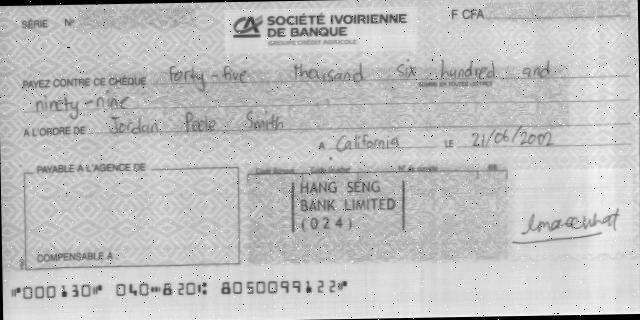 SÉRIE N°
SOCIÉTÉ IVOIRIENNE
DE BANQUE
GROUPE CRÉDIT AGRICOLE
F CFA
PAYEZ CONTRE CE CHÈQUE forty-five thousand six hundred and
ninety-nine
A L'ORDRE DE Jordan Poole Smith
A California LE 21/06/2002
PAYABLE A L'AGENCE DE
HANG SENG
BANK LIMITED
(024)
COMPENSABLE A
⑈000130⑈ 040⑉820⑆ 8050099122⑈